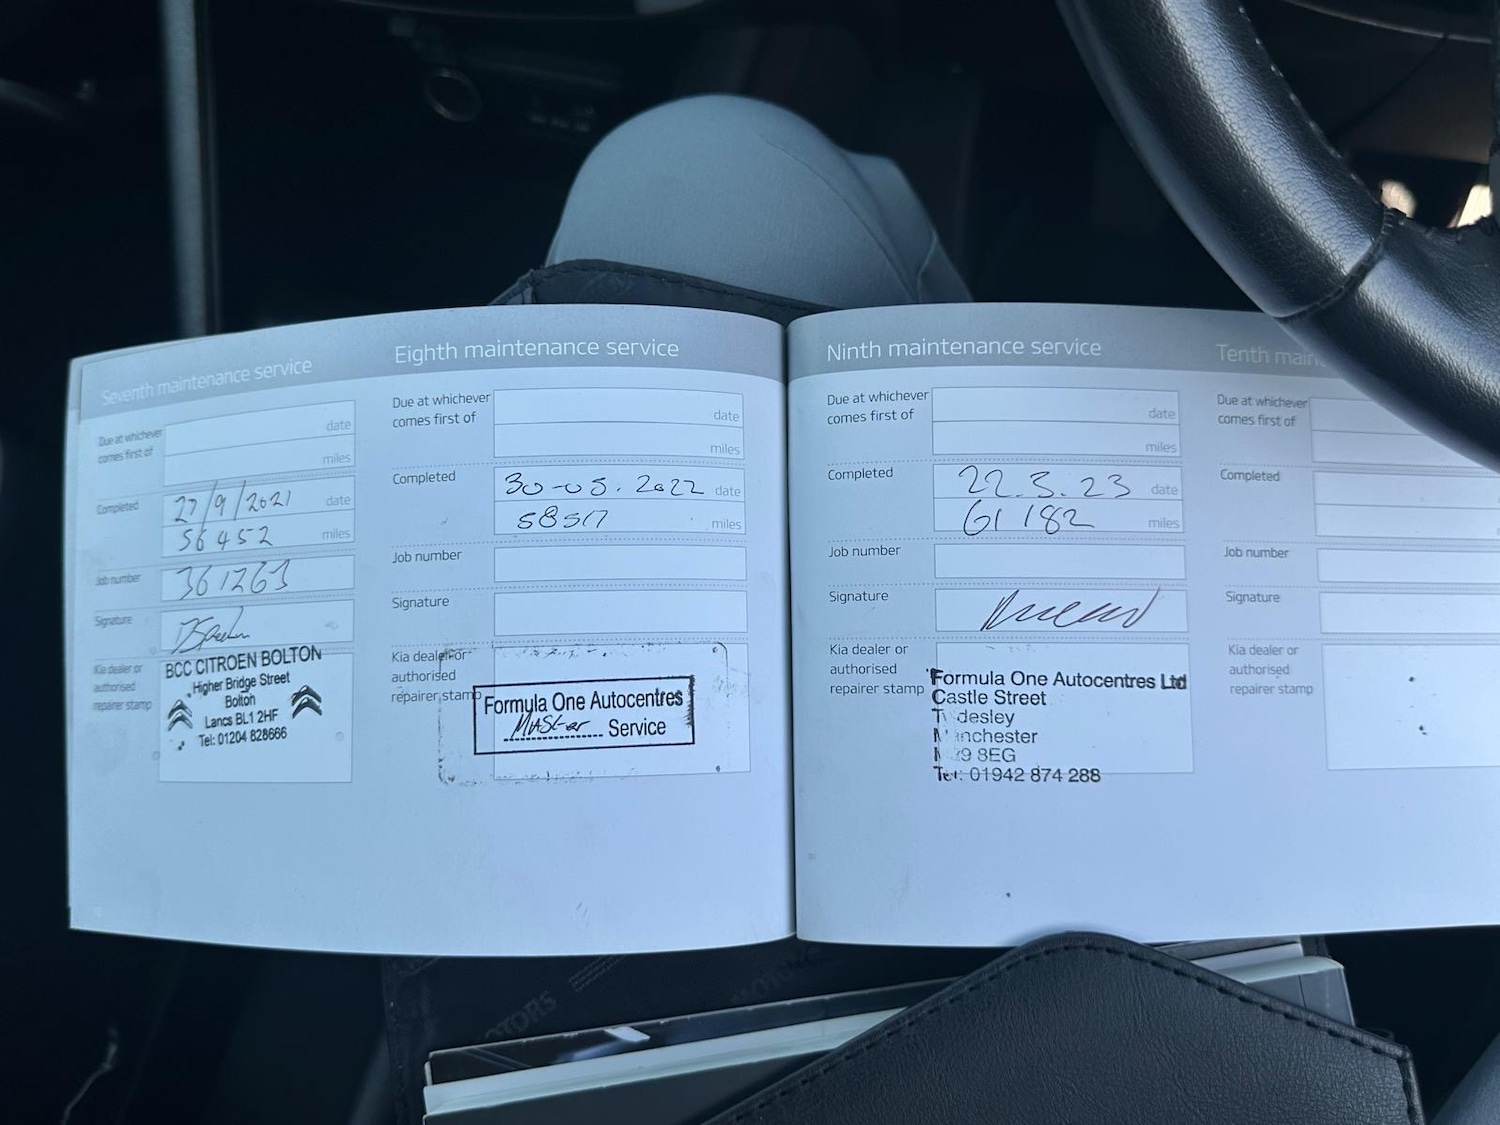 Seventh maintenance service
Due at whichever
comes first of
date
miles
Completed
27/9/2021 date
56452 miles
Job number
361263
Signature
Kia dealer or
authorised
repairer stamp
BCC CITROEN BOLTON
Higher Bridge Street
Bolton
Lancs BL1 2HF
Tel: 01204 828666
Eighth maintenance service
Due at whichever
comes first of
date
miles
Completed
30-05.2022 date
58517 miles
Job number
Signature
Kia dealer or
authorised
repairer stamp
Formula One Autocentres
Master Service
Ninth maintenance service
Due at whichever
comes first of
date
miles
Completed
22.3.23 date
61182 miles
Job number
Signature
Kia dealer or
authorised
repairer stamp
Formula One Autocentres Ltd
Castle Street
Manchester
Tel: 01942 874 288
Tenth
Due at whichever
comes first of
Completed
Job number
Signature
Kia dealer or
authorised
repairer stamp